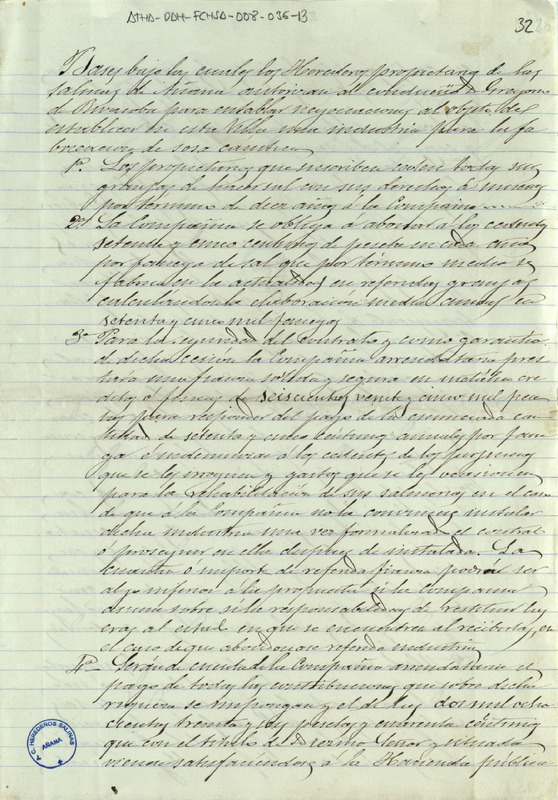 ATHA-DAH-FCHSA-008-036-13
32
Bases bajo las cuales los Herederos propietarios de las
salinas de Añana autorizan al condueño D. Gregorio
de Barcoba para entablar negociaciones al objeto de
establecer en esta Villa una industria para la fa
bricacion de sosa caustica
1ª Los propietarios que suscriben ceden todas sus
granjas de hacer sal con sus derechos á muera
por termino de diez años á la Compañia
2ª La Compañia se obliga á abonar á los cedentes
setenta y cinco centimos de peseta en cada año
por fanega de sal que por término medio se
fabrica en la actualidad en referidas granjas
calculandose la elaboracion media anual en
setenta y cinco mil fanegas
3ª Para la seguridad del contrato y como garantia
de dicha cesion la Compañia arrendataria pres
tará una fianza sólida y segura en metálico cre
ditos ó fincas de seiscientas veinte y cinco mil pese
tas para responder del pago de la enunciada can
tidad de setenta y cinco centimos anuales por fane
ga é indemnizar á los cedentes de los perjuicios
que se les irroguen y gastos que se les ocasionen
para la rehabilitacion de sus salinas en el caso
de que á la Compañia no la convenga instalar
dicha industria una vez formulizado el contrato
ó proseguir en ella despues de instalada. La
cuantia ó importe de referida fianza podrá ser
algo inferior á la propuesta si la Compañia
asume sobre si la responsabilidad de restituir las
eras al estado en que se encuentren al recibirlas, en
el caso de que abandonase referida industria
4ª Será de cuenta de la Compañia arrendataria el
pago de todas las contribuciones que sobre dicha
riqueza se impongan y el de las dos mil ocho
cientas treinta y seis pesetas y cuarenta céntimos
que con el titulo de Diezmo
vienen satisfaciendose á la Hacienda publica
C. HEREDEROS SALINAS
ARANA